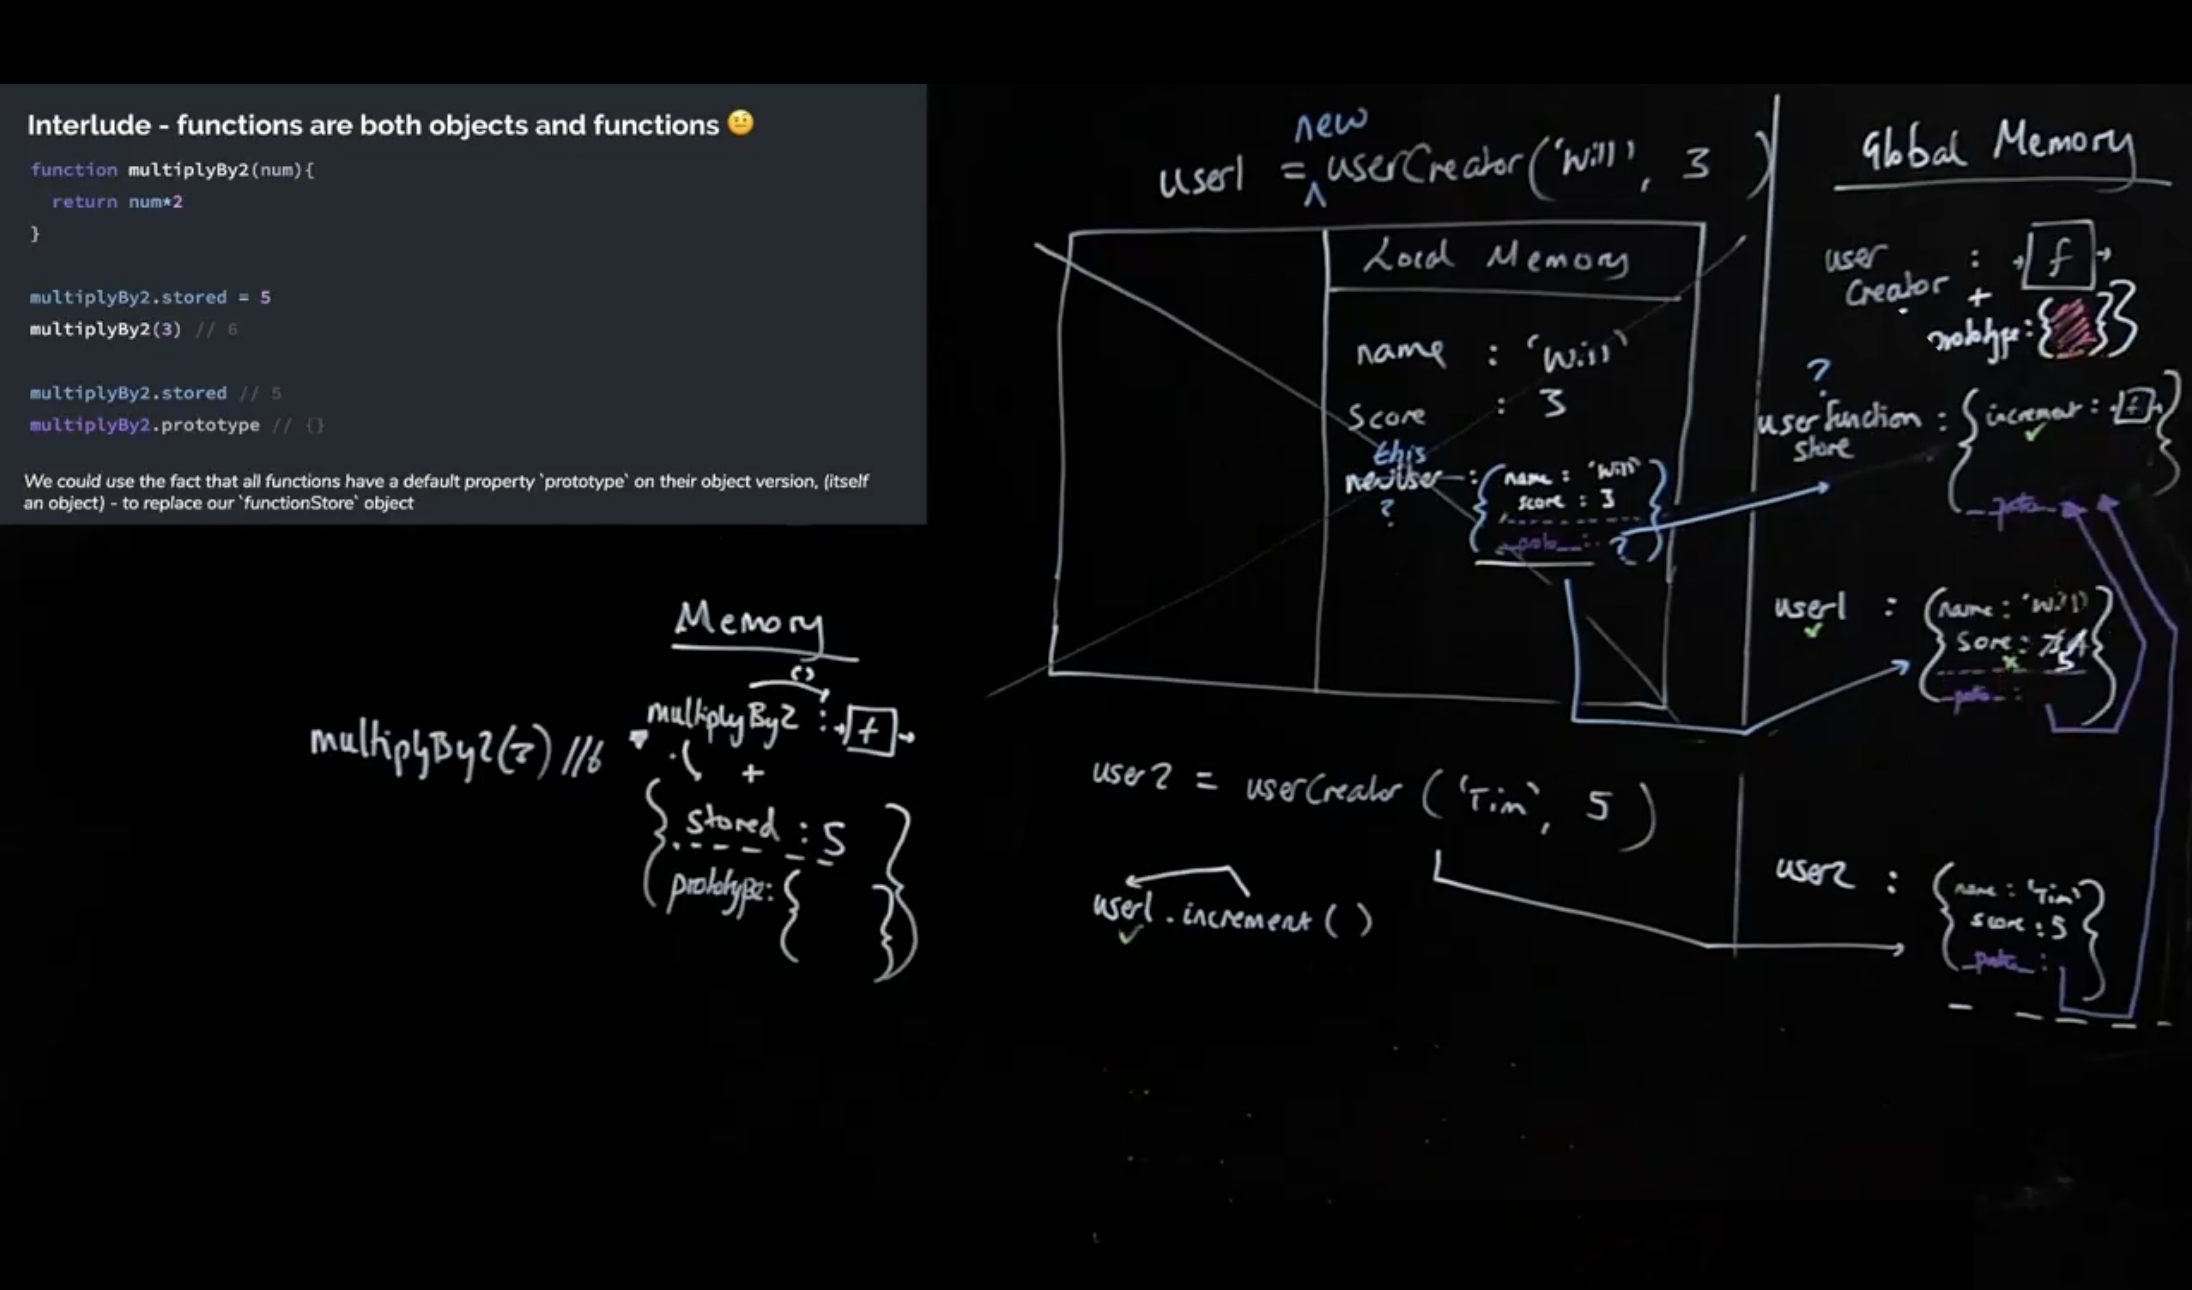 Interlude - functions are both objects and functions 🤨
function multiplyBy2(num){
return num*2
}
multiplyBy2.stored = 5
multiplyBy2(3) // 6
multiplyBy2.stored // 5
multiplyBy2.prototype // {}
We could use the fact that all functions have a default property `prototype` on their object version, (itself
an object) - to replace our `functionStore` object
Memory
()
multiplyBy2 : f
multiplyBy2(3) // 6
+
{ stored : 5
prototype: { } }
new
user1 = userCreator('Will', 3 )
Local Memory
name : 'Will'
score : 3
this
newUser : { name : 'Will'
score : 3
?
__proto__ : ? }
user2 = userCreator ('Tim', 5 )
user1 . increment ( )
Global Memory
user
Creator : f
+
prototype: { } }
?
user function : { increment : f
store
__proto__ }
user1 : { name : 'Will'
score : 5
__proto__ : }
user2 : { name : 'Tim'
score : 5
__proto__ : }